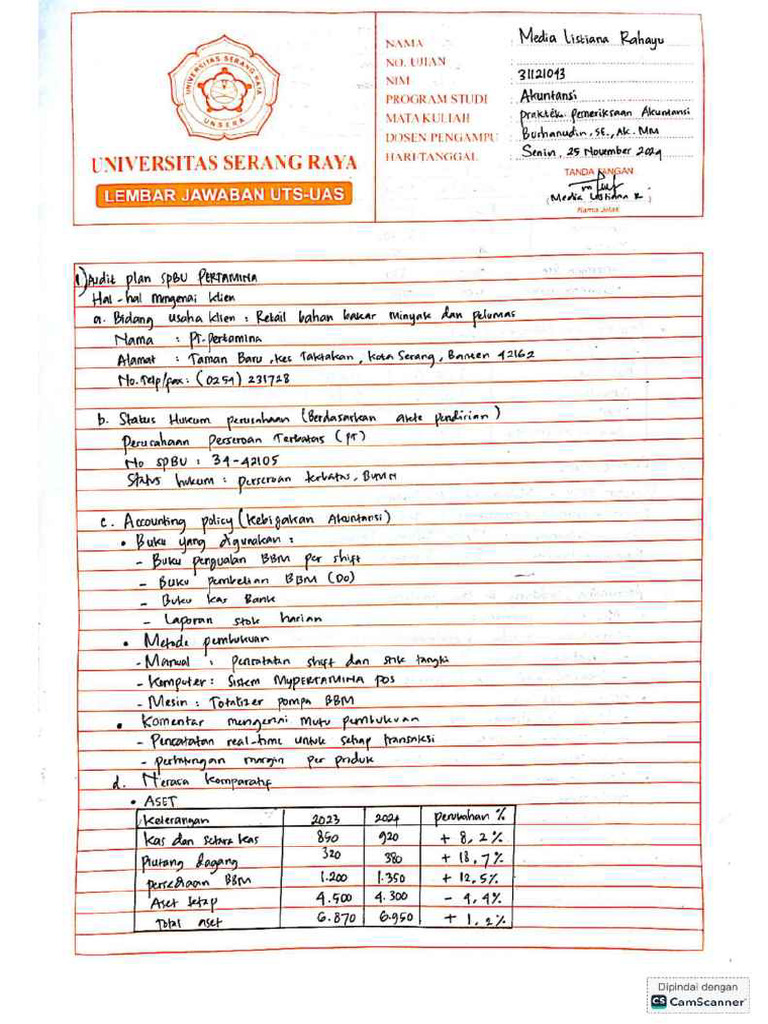 UNIVERSITAS SERANG RAYA
UNSERA
UNIVERSITAS SERANG RAYA
LEMBAR JAWABAN UTS-UAS
NAMA Media Listiana Rahayu
NO. UJIAN
NIM 31121043
PROGRAM STUDI Akuntansi
MATA KULIAH praktek pemeriksaan Akuntansi
DOSEN PENGAMPU Burhanudin, SE., Ak. MM
HARI/TANGGAL Senin, 25 November 2024
TANDA TANGAN
(Media Listiana R)
Nama Jelas
1) Audit plan SPBU PERTAMINA
Hal-hal mengenai klien
a. Bidang usaha klien : Retail bahan bakar minyak dan pelumas
Nama : PT. pertamina
Alamat : Taman Baru, kec Taktakan, kota Serang, Banten 42162
No. Telp/fax : (0254) 231728
b. Status Hukum perusahaan (Berdasarkan akte pendirian)
Perusahaan Perseroan Terbatas (PT)
No SPBU : 34-42105
Status hukum : perseroan terbatas, BUMN
c. Accounting policy (kebijakan Akuntansi)
• Buku yang digunakan :
- Buku penjualan BBM per shift
- Buku pembelian BBM (DO)
- Buku kas Bank
- Laporan stok harian
• Metode pembukuan
- Manual : pencatatan shift dan stik tangki
- Komputer : Sistem MYPERTAMINA POS
- Mesin : Totalizer pompa BBM
• Komentar mengenai mutu pembukuan
- Pencatatan real-time untuk setiap transaksi
- perhitungan margin per produk
d. Neraca komparatif
• ASET
Keterangan 2023 2024 perubahan %
Kas dan setara kas 850 920 + 8,2%
Piutang dagang 320 380 + 18,7%
persediaan BBM 1.200 1.350 + 12,5%
Aset tetap 4.500 4.300 - 4,4%
Total aset 6.870 6.950 + 1,2%
Dipindai dengan
CS CamScanner